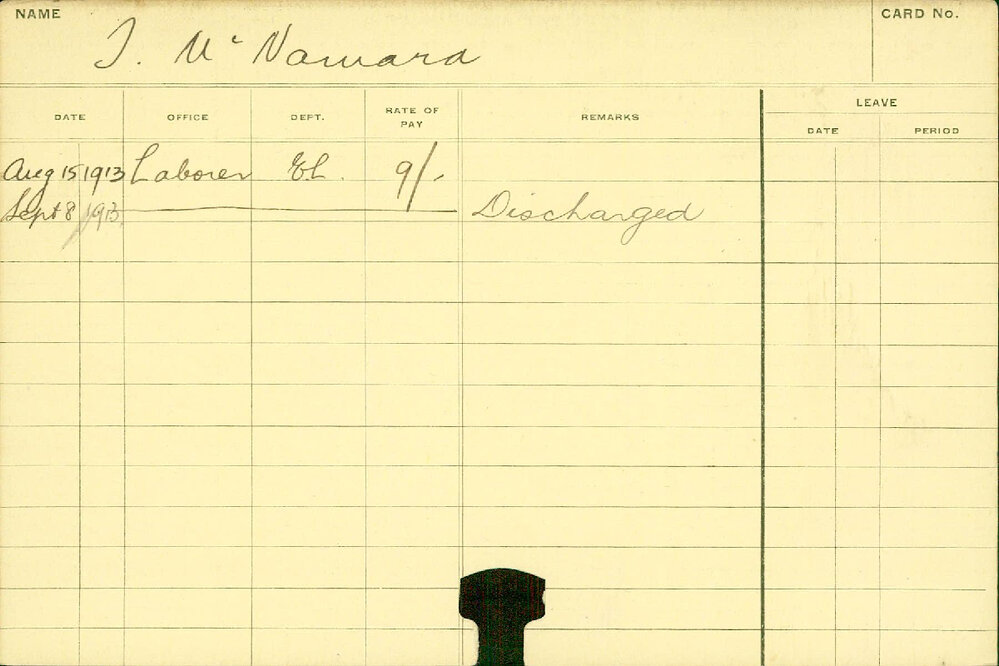 NAME
CARD No.
J. McNamara
DATE OFFICE DEPT. RATE OF PAY REMARKS LEAVE
DATE PERIOD
Aug 15 1913 Laborer El. 9/-
Sept 8 1913 Discharged